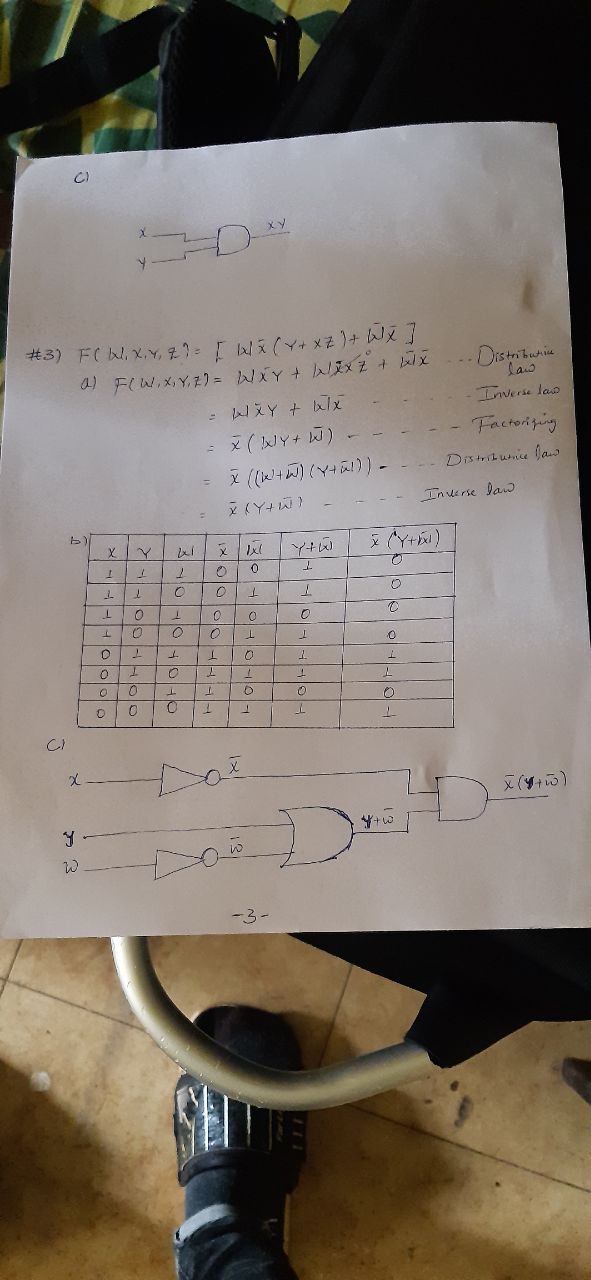 C)
X
Y
XY
#3) F(W,X,Y,Z) = [ WX̄(Y+XZ)+W̄X̄ ]
a) F(W,X,Y,Z) = WX̄Y + WX̄XZ⁰ + W̄X̄ ... Distributive law
= WX̄Y + W̄X̄ - - - - - Inverse law
= X̄(WY+W̄) - - - - - Factorizing
= X̄((W+W̄)(Y+W̄)) - .... Distributive law
= X̄(Y+W̄) - - - - - Inverse law
b)
X Y W X̄ W̄ Y+W̄ X̄(Y+W̄)
1 1 1 0 0 1 0
1 1 0 0 1 1 0
1 0 1 0 0 0 0
1 0 0 0 1 1 0
0 1 1 1 0 1 1
0 1 0 1 1 1 1
0 0 1 1 0 0 0
0 0 0 1 1 1 1
C)
x x̄ x̄(y+w̄)
y y+w̄
w w̄
-3-